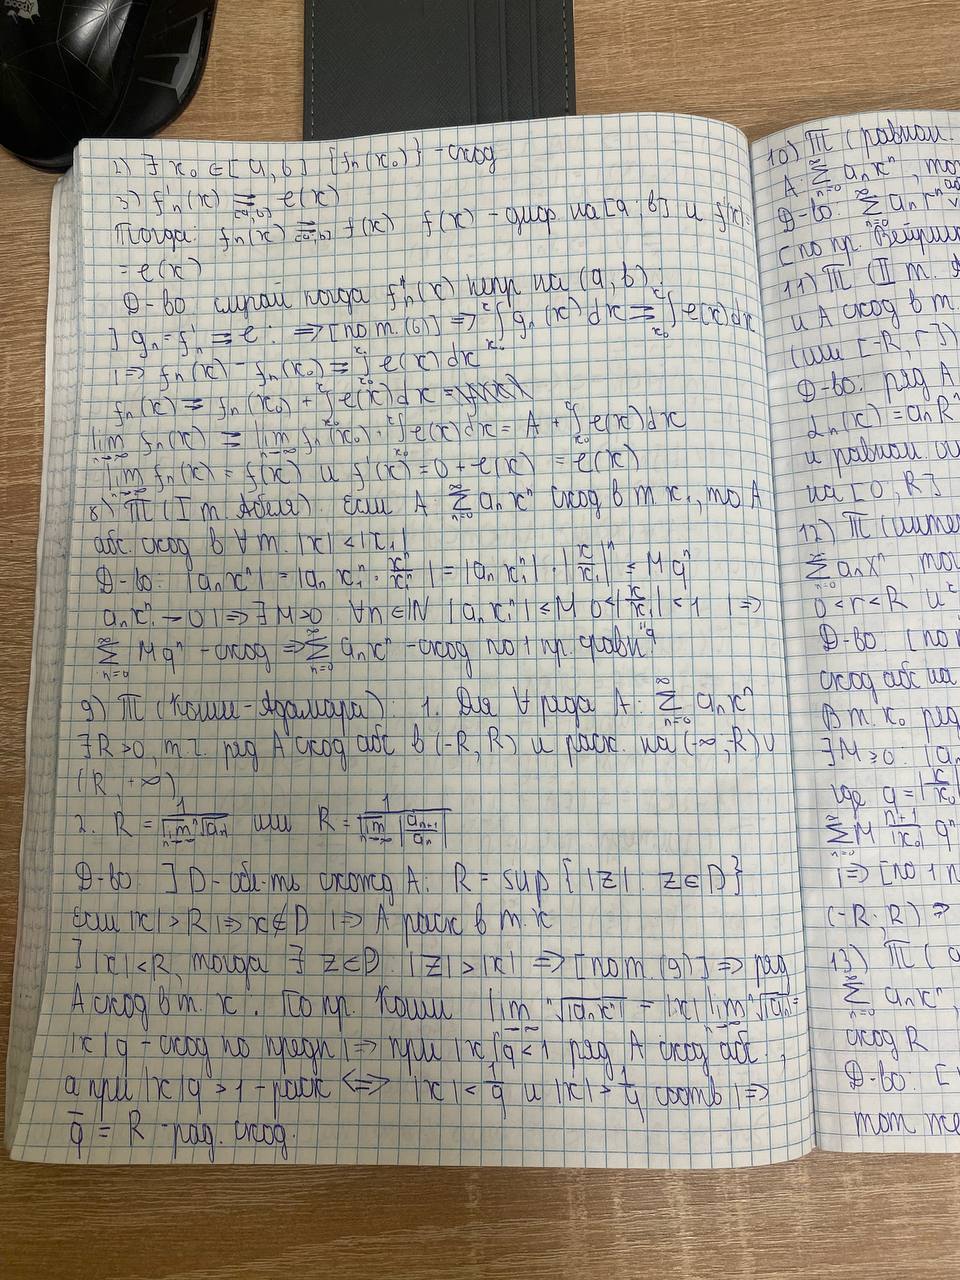 2) ∃ x₀ ∈ [a, b] {fₙ(x₀)} - сход
3) f'ₙ(x) ⇉ e(x)
[a,b]
Тогда: fₙ(x) ⇉ f(x) f(x) - диф на [a; b] и f'(x)=
= e(x)
Д-во случай когда f'ₙ(x) непр на (a, b):
] gₙ = f'ₙ ⇉ e : ⇒ [по т. (6)] ⇒ ∫ gₙ(x) dx ⇉ ∫ e(x) dx
|⇒ fₙ(x) - fₙ(x₀) ⇉ ∫ e(x) dx
fₙ(x) ⇉ fₙ(x₀) + ∫ e(x) dx
lim fₙ(x) = lim fₙ(x₀) + ∫ e(x) dx = A + ∫ e(x) dx
lim fₙ(x) = f(x) и f'(x) = 0 + e(x) = e(x)
8) Т (I т. Абеля). Если A: ∑ aₙxⁿ сход в т. x₁, то A
абс. сход в ∀ т. |x| < |x₁|
Д-во: |aₙxⁿ| = |aₙx₁ⁿ · xⁿ/x₁ⁿ| = |aₙx₁ⁿ| · |x/x₁|ⁿ ≤ Mqⁿ
aₙx₁ⁿ → 0 |⇒ ∃ M>0 ∀n∈ℕ |aₙx₁ⁿ| ≤ M 0<|x/x₁|<1 |⇒
∑ Mqⁿ - сход ⇒ ∑ aₙxⁿ - сход по 1 пр. сравн
9) Т (Коши-Адамара). 1. Для ∀ ряда A: ∑ aₙxⁿ
∃ R>0, т.ч. ряд A сход абс в (-R, R) и раск. на (-∞, -R) ∪
(R, +∞)
2. R = 1/lim ⁿ√|aₙ| или R = 1/lim |aₙ₊₁/aₙ|
Д-во: ] D - обл-ть сходд A: R = sup {|z| : z∈D}
если |x| > R |⇒ x∉D |⇒ A раск в т. x
] |x| < R, тогда ∃ z∈D. |z| > |x| ⇒ [по т. (9)] ⇒ ряд
A сход в т. x. По пр. Коши lim ⁿ√|aₙxⁿ| = |x| lim ⁿ√|aₙ| =
|x|q - сход по предп |⇒ при |x|q < 1 ряд A сход абс,
а при |x|q > 1 - раск ⇔ |x| < 1/q и |x| > 1/q соотв |⇒
1/q = R - рад. сход.
10) Т (равном.
A: ∑ aₙxⁿ, то
Д-во: ∑ aₙrⁿ
[по пр. Вейрш
11) Т (II т. А
и A сход в т.
(или [-R, r])
Д-во: ряд A
αₙ(x) = aₙRⁿ
и равном.
на [0, R]
12) Т (инте
∑ aₙxⁿ, то
0 < r < R и
Д-во: [по
сход абс на
В т. x₀ ряд
∃ M ≥ 0: |aₙ
где q = |x/x₀|
∑ M (n+1)/|x₀| qⁿ
|⇒ [по 1 п
(-R; R) ⇒
13) Т (
∑ aₙxⁿ,
сход R
Д-во: [
тот же